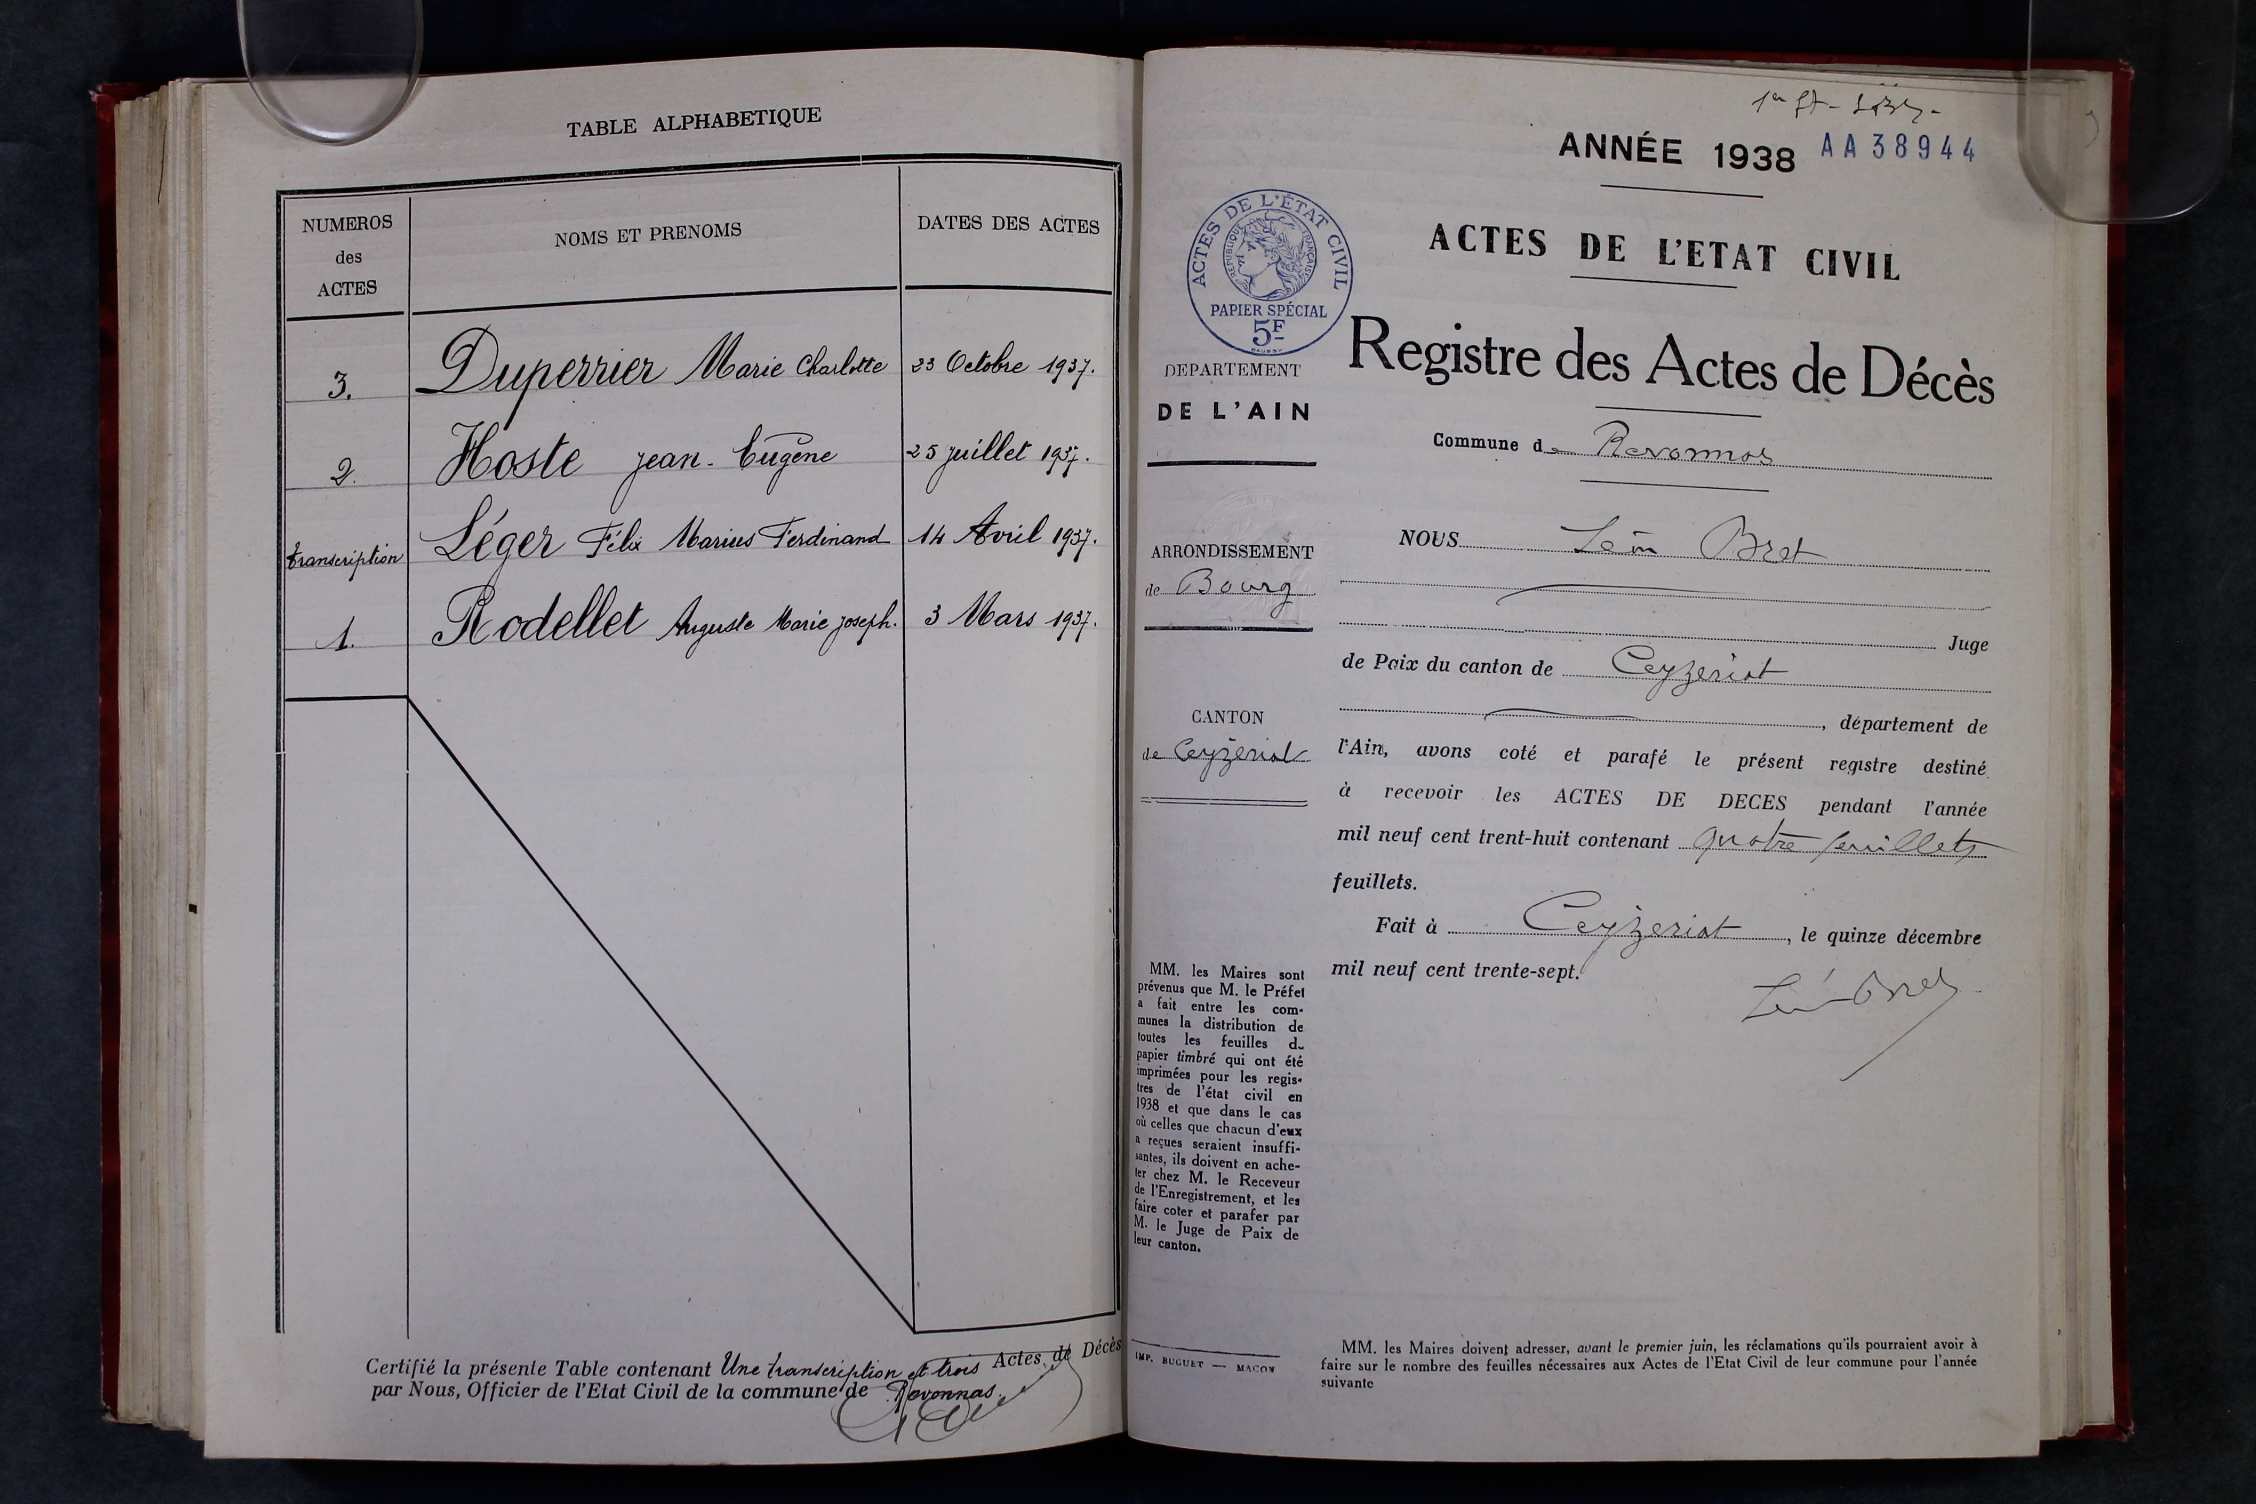 TABLE ALPHABETIQUE
NUMEROS
des
ACTES
NOMS ET PRENOMS
DATES DES ACTES
3. Duperrier Marie Charlotte 23 Octobre 1937.
2. Hoste Jean-Eugène 25 juillet 1937.
transcription Léger Félix Marius Ferdinand 14 Avril 1937.
1. Rodellet Auguste Marie Joseph. 3 Mars 1937.
Certifié la présente Table contenant Une transcription et trois Actes de Décès
par Nous, Officier de l'Etat Civil de la commune de Revonnas.
ANNÉE 1938
AA38944
ACTES DE L'ÉTAT CIVIL
RÉPUBLIQUE FRANÇAISE
PAPIER SPÉCIAL
5F
DEPARTEMENT
DE L'AIN
ARRONDISSEMENT
de Bourg
CANTON
de Ceyzeriat
MM. les Maires sont
prévenus que M. le Préfet
a fait entre les com-
munes la distribution de
toutes les feuilles de
papier timbré qui ont été
imprimées pour les regis-
tres de l'état civil en
1938 et que dans le cas
où celles que chacun d'eux
a reçues seraient insuffi-
santes, ils doivent en ache-
ter chez M. le Receveur
de l'Enregistrement, et les
faire coter et parafer par
M. le Juge de Paix de
leur canton.
IMP. BUGUET — MACON
ACTES DE L'ETAT CIVIL
Registre des Actes de Décès
Commune de Revonnas
NOUS Léon Bret
Juge
de Paix du canton de Ceyzeriat
, département de
l'Ain, avons coté et parafé le présent registre destiné
à recevoir les ACTES DE DECES pendant l'année
mil neuf cent trent-huit contenant quatre feuillets
feuillets.
Fait à Ceyzeriat, le quinze décembre
mil neuf cent trente-sept.
Léon Bret
MM. les Maires doivent adresser, avant le premier juin, les réclamations qu'ils pourraient avoir à
faire sur le nombre des feuilles nécessaires aux Actes de l'Etat Civil de leur commune pour l'année
suivante